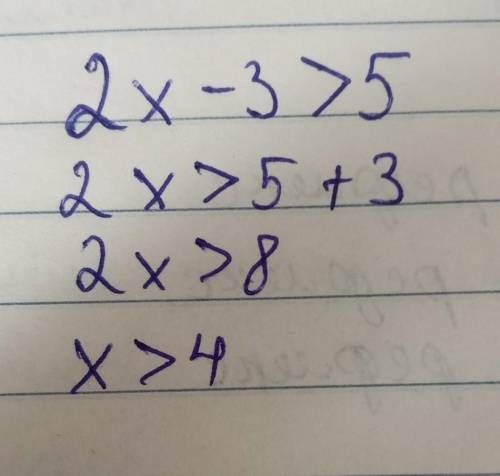 2x - 3 > 5
2x > 5 + 3
2x > 8
x > 4